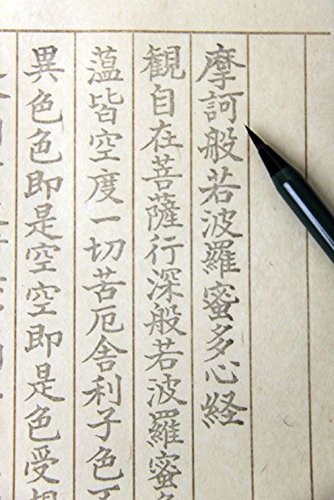 摩訶般若波羅蜜多心経
観自在菩薩行深般若波羅蜜
薀皆空度一切苦厄舎利子色
異色色即是空空即是色受想